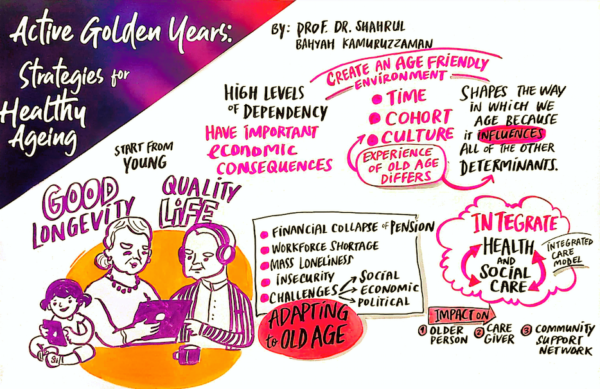 Active Golden Years:
Strategies for
Healthy
Ageing
BY: PROF. DR. SHAHRUL
BAHYAH KAMURUZZAMAN
CREATE AN AGE FRIENDLY
ENVIRONMENT
TIME
COHORT
CULTURE
EXPERIENCE
OF OLD AGE
DIFFERS
SHAPES THE WAY
IN WHICH WE
AGE BECAUSE
it INFLUENCES
ALL OF THE OTHER
DETERMINANTS.
HIGH LEVELS
OF DEPENDENCY
HAVE IMPORTANT
ECONOMIC
CONSEQUENCES
START FROM
YOUNG
GOOD
LONGEVITY
QUALITY
LIFE
FINANCIAL COLLAPSE OF PENSION
WORKFORCE SHORTAGE
MASS LONELINESS
INSECURITY
CHALLENGES
SOCIAL
ECONOMIC
POLITICAL
ADAPTING
to OLD AGE
INTEGRATE
HEALTH
AND
SOCIAL
CARE
INTEGRATED
CARE
MODEL
IMPACT ON
1 OLDER
PERSON
2 CARE
GIVER
3 COMMUNITY
SUPPORT
NETWORK